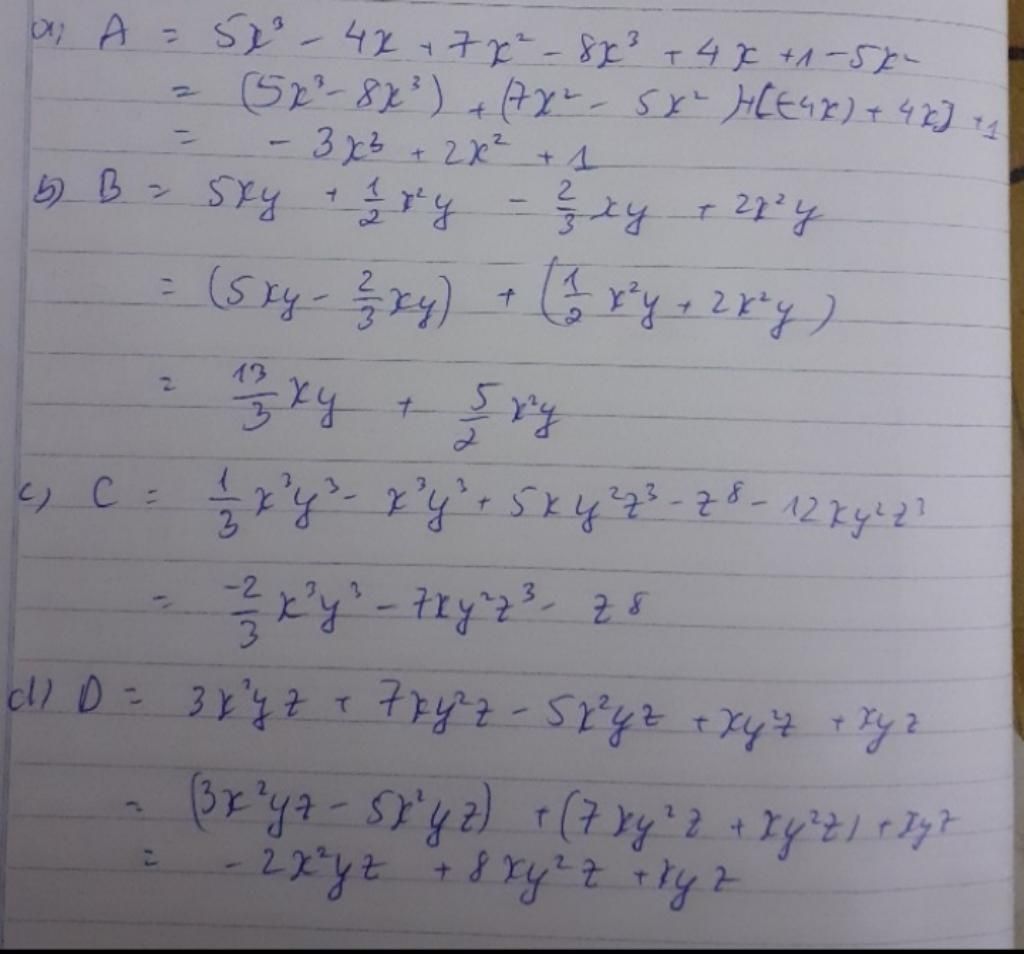 a, A = 5x³ - 4x + 7x² - 8x³ + 4x + 1 - 5x²
= (5x³ - 8x³) + (7x² - 5x²) + [(-4x) + 4x] + 1
= - 3x³ + 2x² + 1
b) B = 5xy + 1/2 x²y - 2/3 xy + 2x²y
= (5xy - 2/3 xy) + (1/2 x²y + 2x²y)
= 13/3 xy + 5/2 x²y
c) C = 1/3 x³y³ - x³y³ + 5xy²z³ - z⁸ - 12xy²z³
= -2/3 x³y³ - 7xy²z³ - z⁸
d) D = 3x²yz + 7xy²z - 5x²yz + xy²z + xyz
= (3x²yz - 5x²yz) + (7xy²z + xy²z) + xyz
= - 2x²yz + 8xy²z + xyz